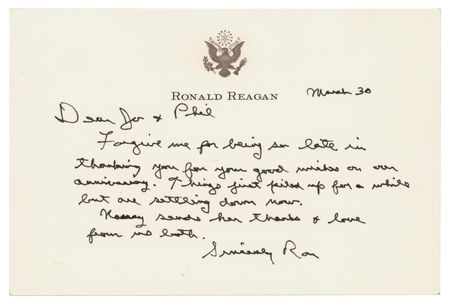 RONALD REAGAN
March 30
Dear Jo & Phil
Forgive me for being so late in
thanking you for your good wishes on our
anniversary. Things just piled up for a while
but are settling down now.
Nancy sends her thanks & love
from us both.
Sincerely Ron